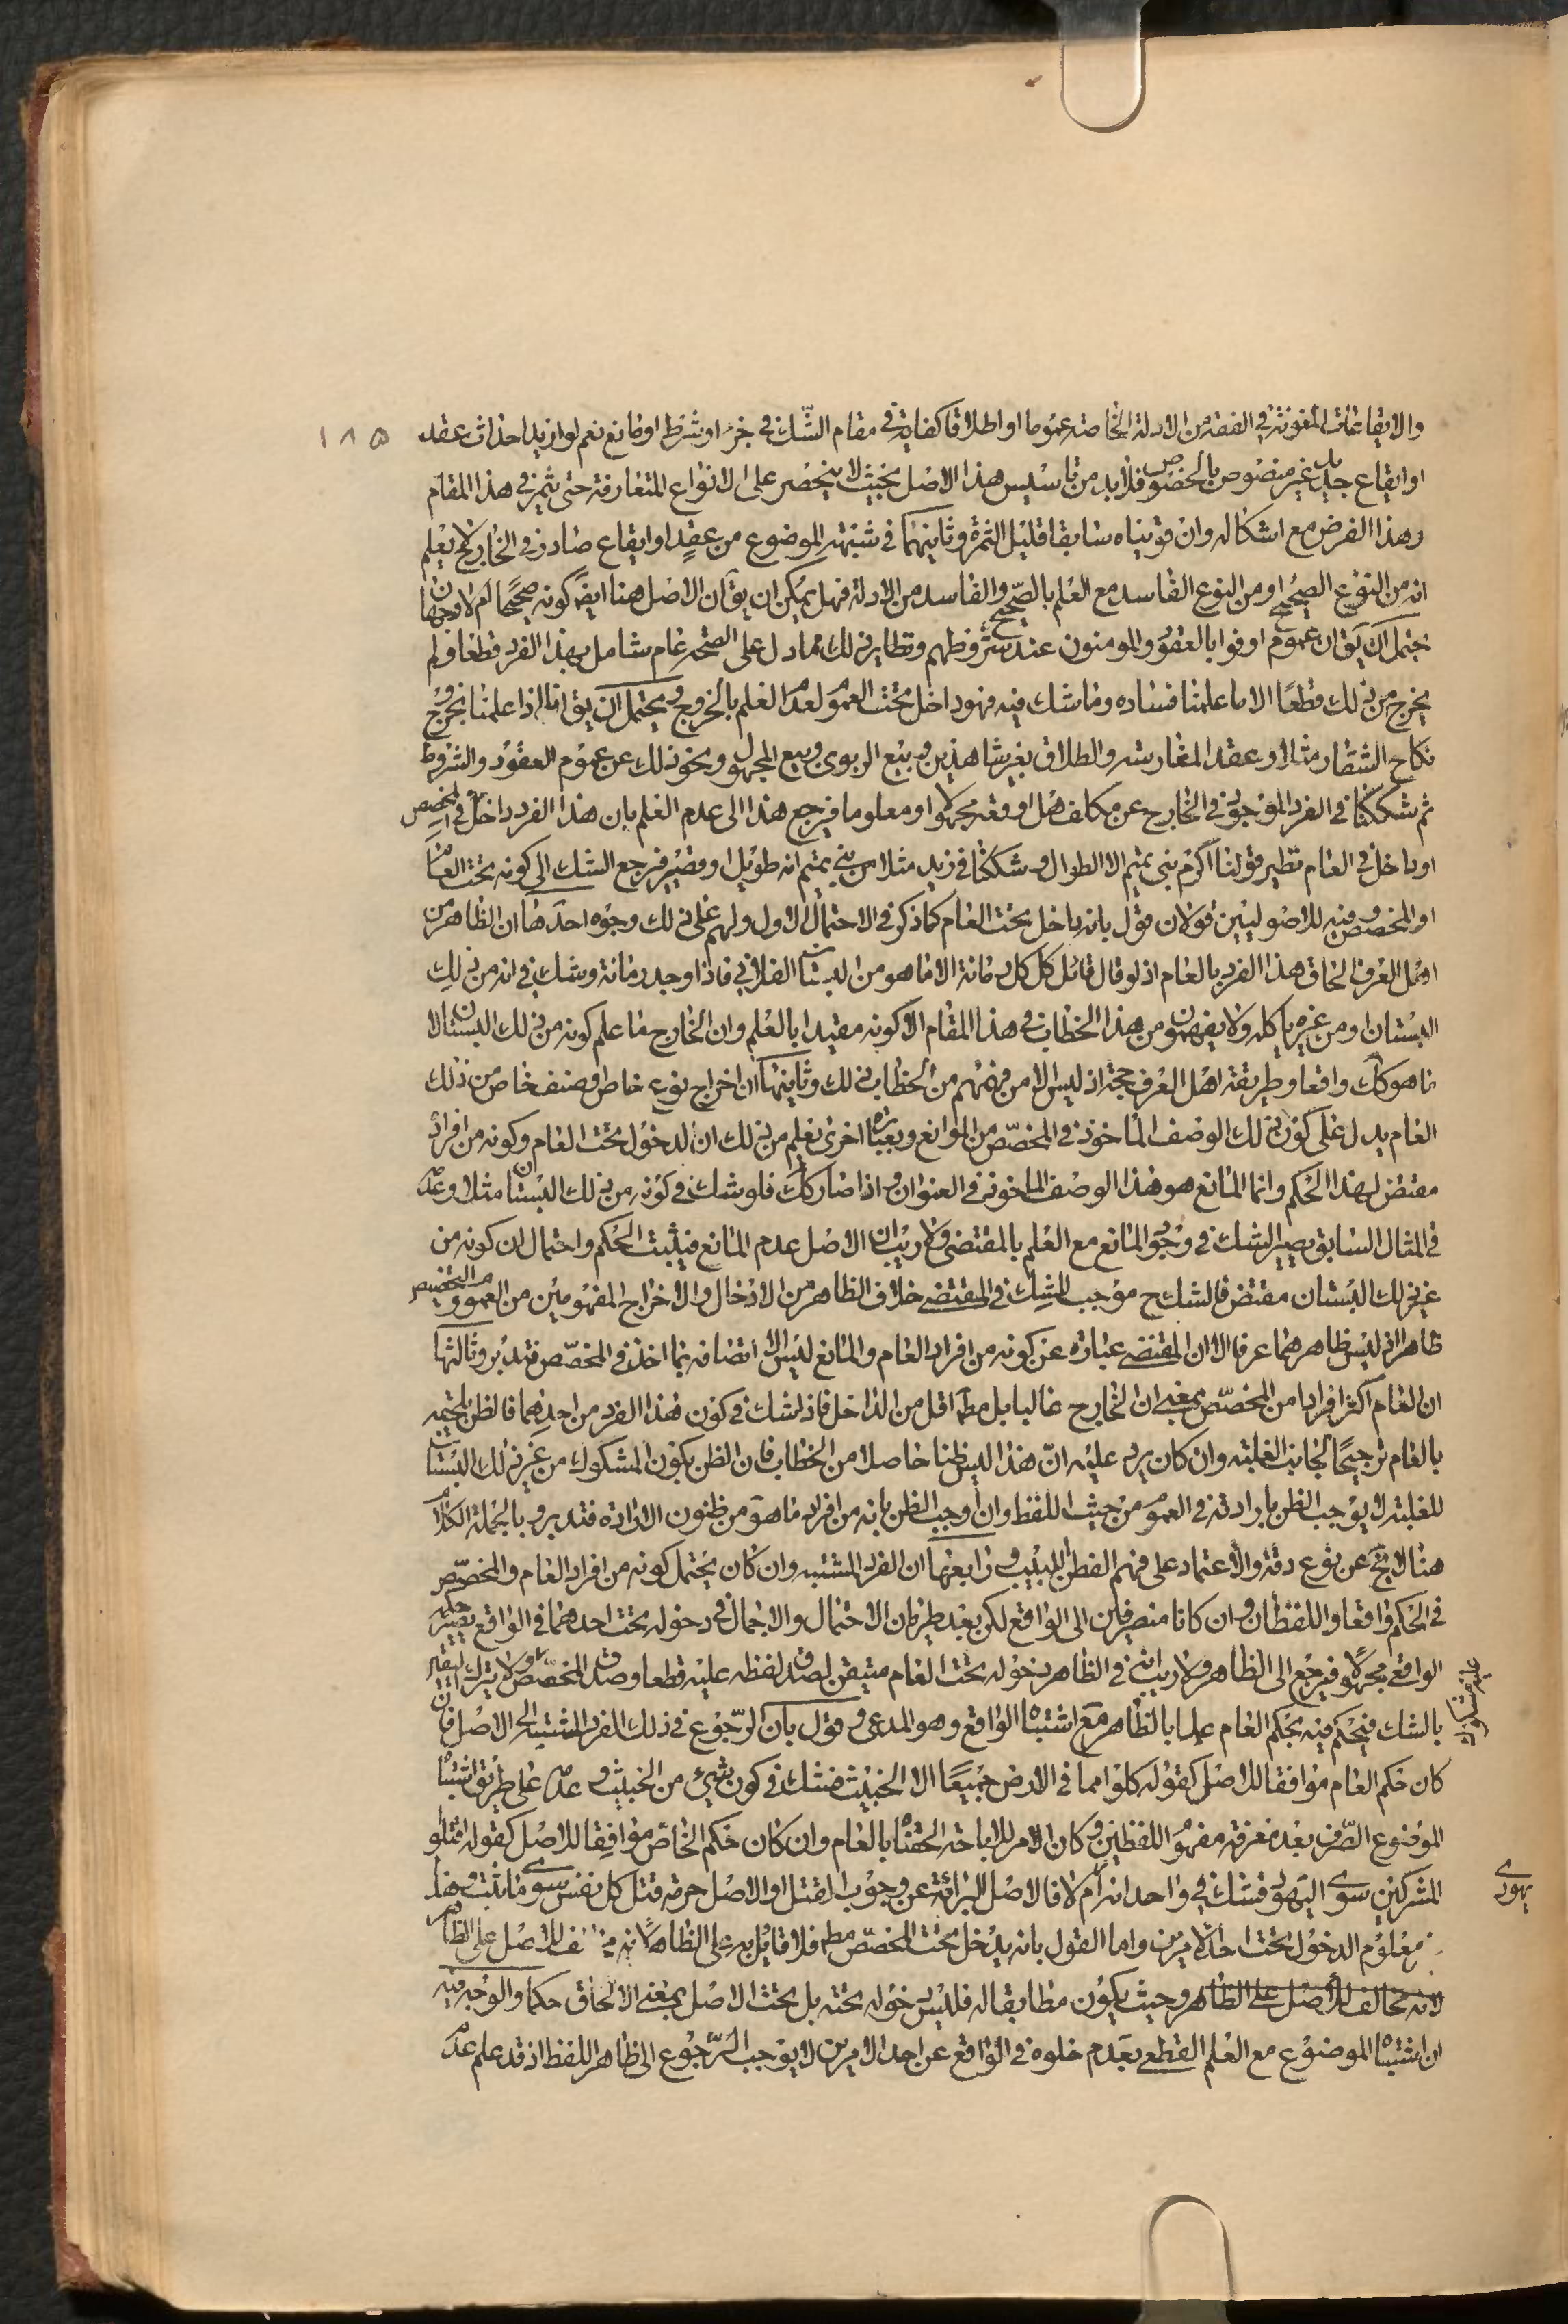 والايقاعات المعنونة في الفقه من الادلة الخاصة عموما او اطلاقا كفاية في مقام الشك في جزء او شرط او مانع نعم لو اريد احداث عقد
۱۸۵
او ايقاع جديد غير منصوص بالخصوص فلابد من تاسيس هذا الاصل بحيث لا ينحصر على الانواع المتعارفة حتى يثمر في هذا المقام
وهذا الفرض مع اشكاله وان قويناه سابقا قليل الثمرة وثانيهما في شبهة الموضوع من عقد او ايقاع صادر في الخارج لا يعلم
انه من النوع الصحيح او من النوع الفاسد مع العلم بالصحيح والفاسد من الادلة فهل يمكن ان يق ان الاصل هنا ايضا كونه صحيحا ام لا وجهان
يحتمل ان يق ان عموم اوفوا بالعقود والمومنون عند شروطهم ونظاير ذلك مما دل على الصحة عام شامل لهذا الفرد قطعا ولم
يخرج من ذلك قطعا الا ما علمنا فساده وما شك فيه فهو داخل تحت العموم لعدم العلم بالخروج ويحتمل ان يق انا اذا علمنا بخروج
نكاح الشغار مثلا او عقد المغارسة والطلاق بغير شاهدين وبيع الربوي وبيع المجهول ونحو ذلك عن عموم العقود والشروط
ثم شككنا في الفرد الموجود في الخارج عن مكلف هل اوقعه مجهولا او معلوما فيرجع هذا الى عدم العلم بان هذا الفرد داخل في المخصص
او داخل في العام نظير قولنا اكرم بني تميم الا الطوال وشككنا في زيد مثلا من بني تميم انه طويل او قصير فرجع الشك الى كونه تحت العام
او المخصص وفيه للاصوليين قولان قول بانه داخل تحت العام كما ذكر في الاحتمال الاول ولهم على ذلك وجوه احدها ان الظاهر من
اهل العرف الحاق هذا الفرد بالعام اذ لو قال قائل كل كل رمانة الا ما هو من البستان الفلاني فاذا وجد رمانة وشك في انه من ذلك
البستان او من غيره ياكله ولا يفهمون من هذا الخطاب في هذا المقام الا كونه مقيدا بالعلم وان الخارج ما علم كونه من ذلك البستان لا
ما هو كك واقعا وطريقة اهل العرف حجة اذ ليس الا من فهمهم من الخطاب ذلك وثانيها ان اخراج نوع خاص وصنف خاص من ذلك
العام يدل على كون ذلك الوصف الماخوذ في المخصص من الموانع وبعبارة اخرى يعلم من ذلك ان الدخول تحت العام وكونه من افراده
مقتض لهذا الحكم وانما المانع هو هذا الوصف الماخوذ في العنوان واذا صار كك فلو شك في كونه من ذلك البستان مثلا وعدمه
في المثال السابق يصير الشك في وجود المانع مع العلم بالمقتضى ولا ريب ان الاصل عدم المانع فيثبت الحكم واحتمال ان كونه من
غير ذلك البستان مقتض فالشك ح موجب للشك في المقتضي خلاف الظاهر من الادخال والاخراج المفهومين من العموم والتخصيص
ظاهرا اذ ليس ظاهرهما عرفا الا ان المقتضي عبارة عن كونه من افراد العام والمانع ليس الا اتصافه بما اخذ في المخصص فتدبر وثالثها
ان العام اكثر افرادا من المخصص بمعنى ان الخارج غالبا بل مطلقا اقل من الداخل فاذا شك في كون هذا الفرد من احدهما فالظن يلحقه
بالعام ترجيحا لجانب الغلبة وان كان يرد عليه ان هذا ليس ظنا حاصلا من الخطاب فان الظن بكون المشكوك من غير ذلك البستان
للغلبة لا يوجب الظن بارادته في العموم من حيث اللفظ وان اوجب الظن بانه من افراد ما هو من ظنون الارادة فتدبر وبالجملة الكلام
هنا لا يخ عن نوع دقة والاعتماد على فهم الفطن اللبيب ورابعها ان الفرد المشتبه وان كان يحتمل كونه من افراد العام والمخصص
في الحكم واقعا واللفظان وان كانا منصرفين الى الواقع لكن بعد طريان الاحتمال والاجمال في دخوله تحت احدهما في الواقع يصير حكم
الواقع مجهولا فيرجع الى الظاهر ولا ريب انه في الظاهر دخوله تحت العام متيقن لصدق لفظه عليه قطعا وصدق المخصص ولا يترك اليقين
عليه مشكوك
بالشك فيحكم فيه بحكم العام عملا بالظاهر مع اشتباه الواقع وهو المدعى وقول بان الرجوع في ذلك الفرد المشتبه الى الاصل فان
كان حكم العام موافقا للاصل كقوله كلوا مما في الارض جميعا الا الخبيث فشك في كون شيء من الخبيث وعدمه على طريق اشتباه
الموضوع الصرف بعد معرفة مفهوم اللفظين وكان الامر للاباحة الحقناه بالعام وان كان حكم الخاص موافقا للاصل كقوله اقتلوا
المشركين سوى اليهود فشك في واحد انه ام لا فالاصل البرائة عن وجوب القتل او الاصل حرمة قتل كل نفس سوى ما ثبت وهذا
يهودي
معلوم الدخول تحت احد الامرين واما القول بانه يدخل تحت المخصص مطلقا فلا قائل به على الظاهر لانه للاصل على الظاهر
لانه مخالف للاصل على الظاهر وحيث يكون مطابقا له فليس دخوله تحته بل تحت الاصل بمعنى الالحاق حكما والوجه فيه
ان اشتباه الموضوع مع العلم القطعي بعدم خلوه في الواقع عن احد الامرين لا يوجب الرجوع الى ظاهر اللفظ اذ قد علم عدم